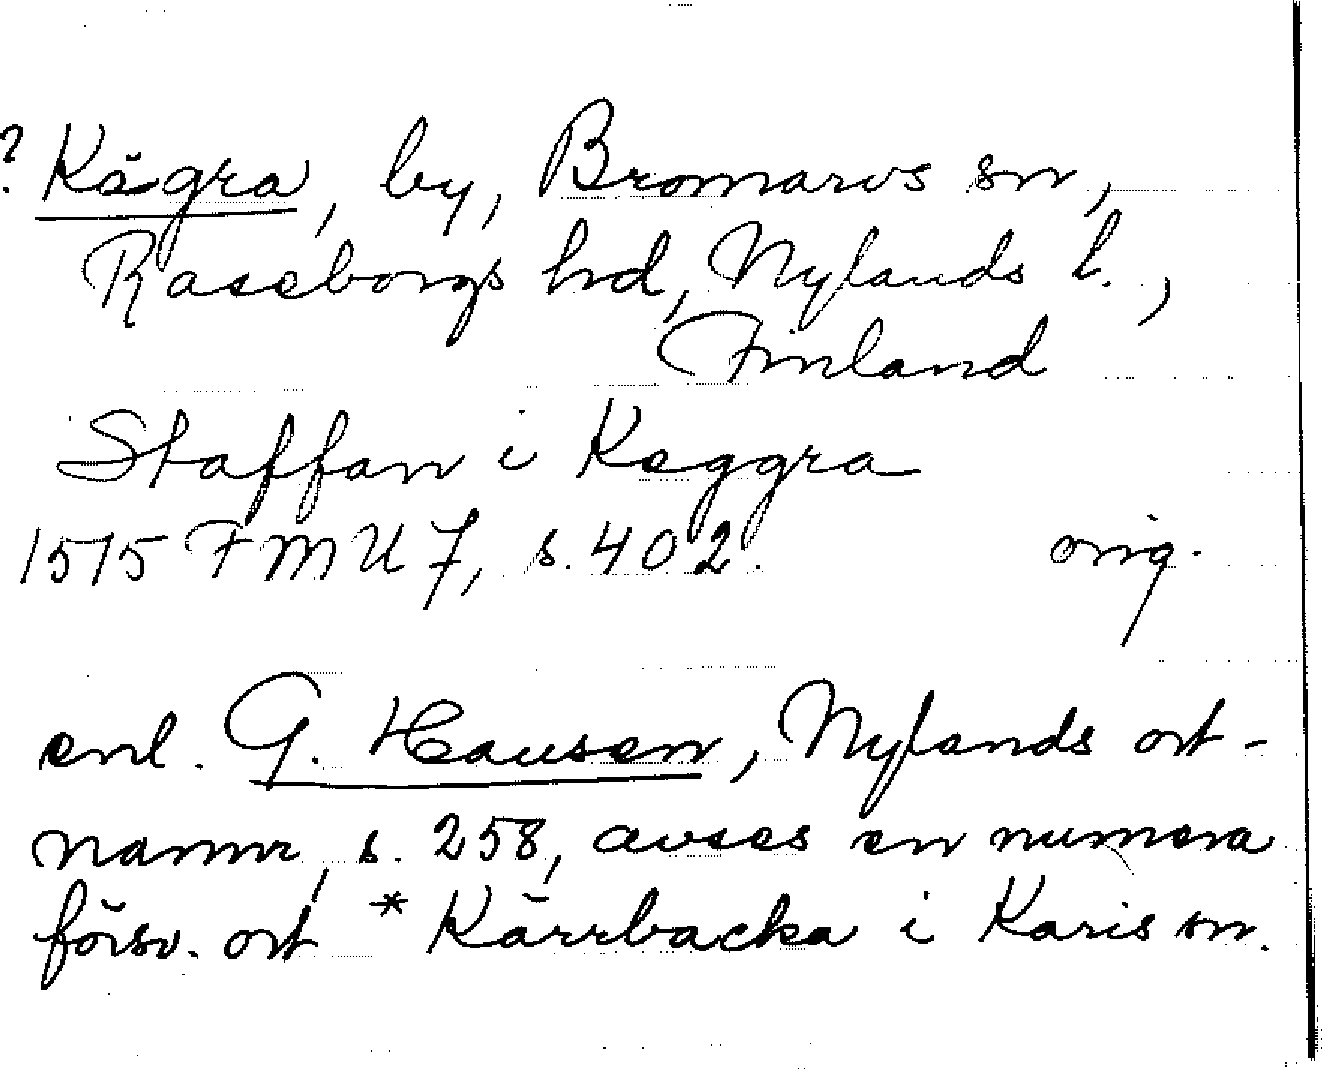 ? Kägra, by, Bromarvs sn,
Raseborgs hd, Nylands l.,
Finland
Staffan i Keggra
1515 FMU 7, s. 402. orig.
enl. G. Hausen, Nylands ort-
namn, s. 258, avses en numera
försv. ort *Kärrbacka i Karis sn.